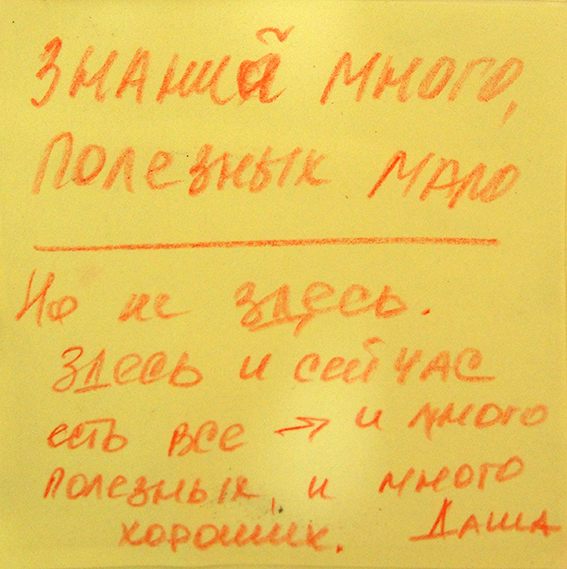 Знаний много,
полезных мало
Но не здесь.
Здесь и сейчас
есть все → и много
полезных, и много
хороших. Даша